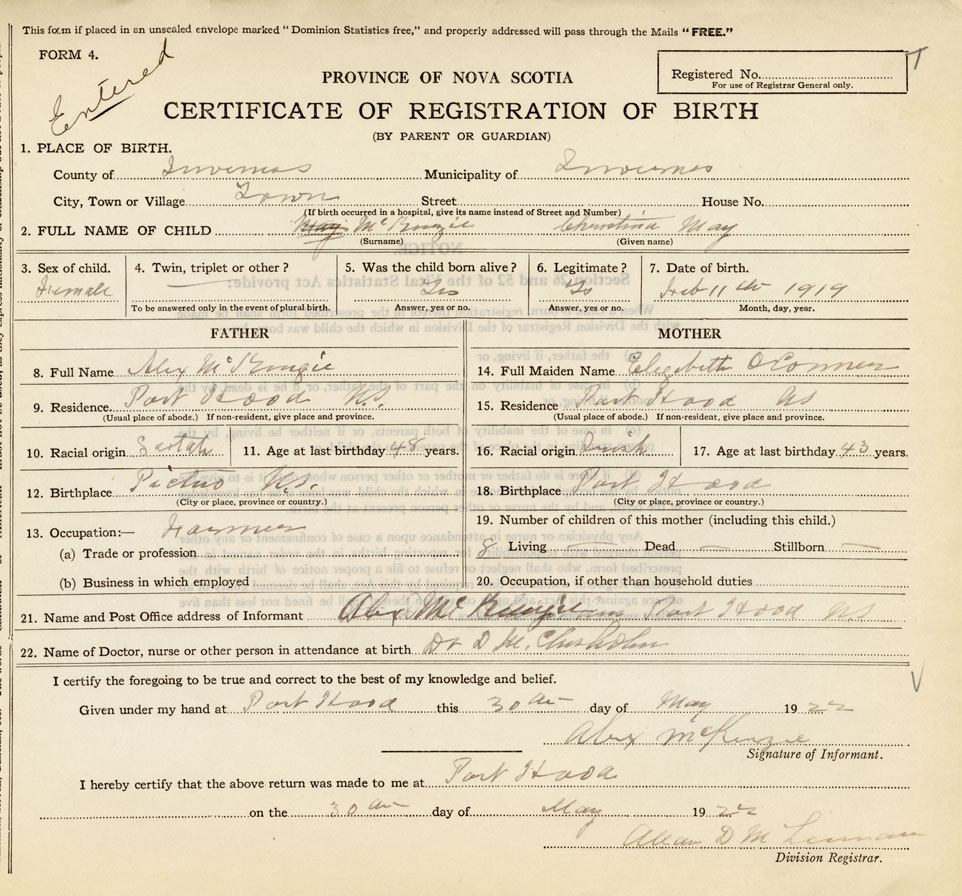 This form if placed in an unsealed envelope marked "Dominion Statistics free," and properly addressed will pass through the Mails "FREE."
FORM 4.
Entered
PROVINCE OF NOVA SCOTIA
Registered No.
For use of Registrar General only.
CERTIFICATE OF REGISTRATION OF BIRTH
(BY PARENT OR GUARDIAN)
1. PLACE OF BIRTH.
County of Inverness Municipality of Inverness
City, Town or Village Town Street House No.
(If birth occurred in a hospital, give its name instead of Street and Number)
2. FULL NAME OF CHILD May McKenzie Christina May
(Surname) (Given name)
3. Sex of child. 4. Twin, triplet or other? 5. Was the child born alive? 6. Legitimate? 7. Date of birth.
Female Yes Yes Feb 11th 1919
To be answered only in the event of plural birth. Answer, yes or no. Answer, yes or no. Month, day, year.
FATHER MOTHER
8. Full Name Alex McKenzie 14. Full Maiden Name Elizabeth OConner
9. Residence. Port Hood N.S. 15. Residence Port Hood NS
(Usual place of abode.) If non-resident, give place and province. (Usual place of abode.) If non-resident, give place and province.
10. Racial origin Scotch 11. Age at last birthday 48 years. 16. Racial origin Irish 17. Age at last birthday 43 years.
12. Birthplace Pictou N.S. 18. Birthplace Port Hood
(City or place, province or country.) (City or place, province or country.)
13. Occupation:— Farmer 19. Number of children of this mother (including this child.)
(a) Trade or profession 8 Living — Dead — Stillborn —
(b) Business in which employed 20. Occupation, if other than household duties
21. Name and Post Office address of Informant Alex McKenzie Port Hood NS
22. Name of Doctor, nurse or other person in attendance at birth Dr D M. Chisholm
I certify the foregoing to be true and correct to the best of my knowledge and belief.
Given under my hand at Port Hood this 30th day of May 1922
Alex McKenzie
Signature of Informant.
I hereby certify that the above return was made to me at Port Hood
on the 30th day of May 1922
Allan D McLennan
Division Registrar.